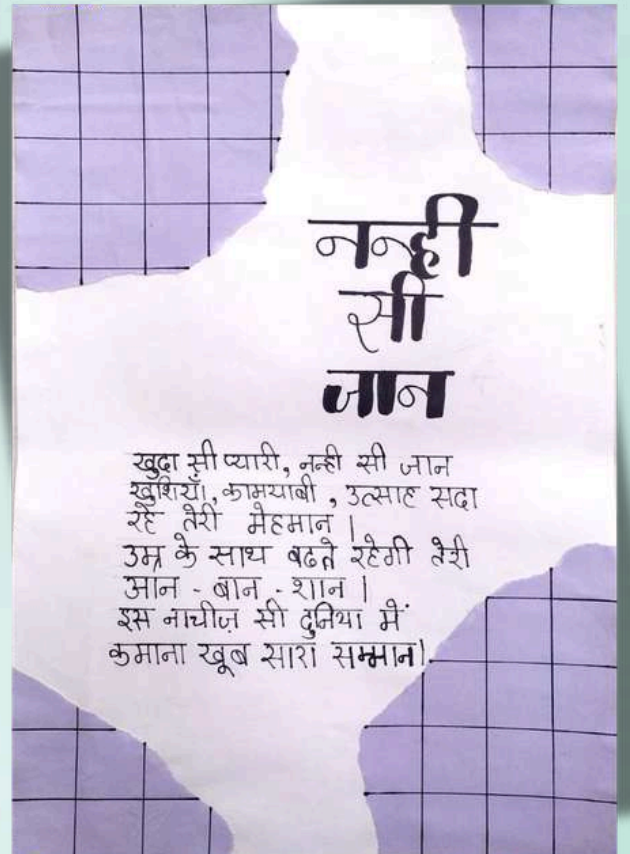 नन्ही
सी
जान
खुदा सी प्यारी, नन्ही सी जान
खुशियाँ, कामयाबी, उत्साह सदा
रहे तेरी मेहमान |
उम्र के साथ बढते रहेगी तेरी
आन - बान - शान |
इस नाचीज़ सी दुनिया में
कमाना खूब सारा सम्मान|